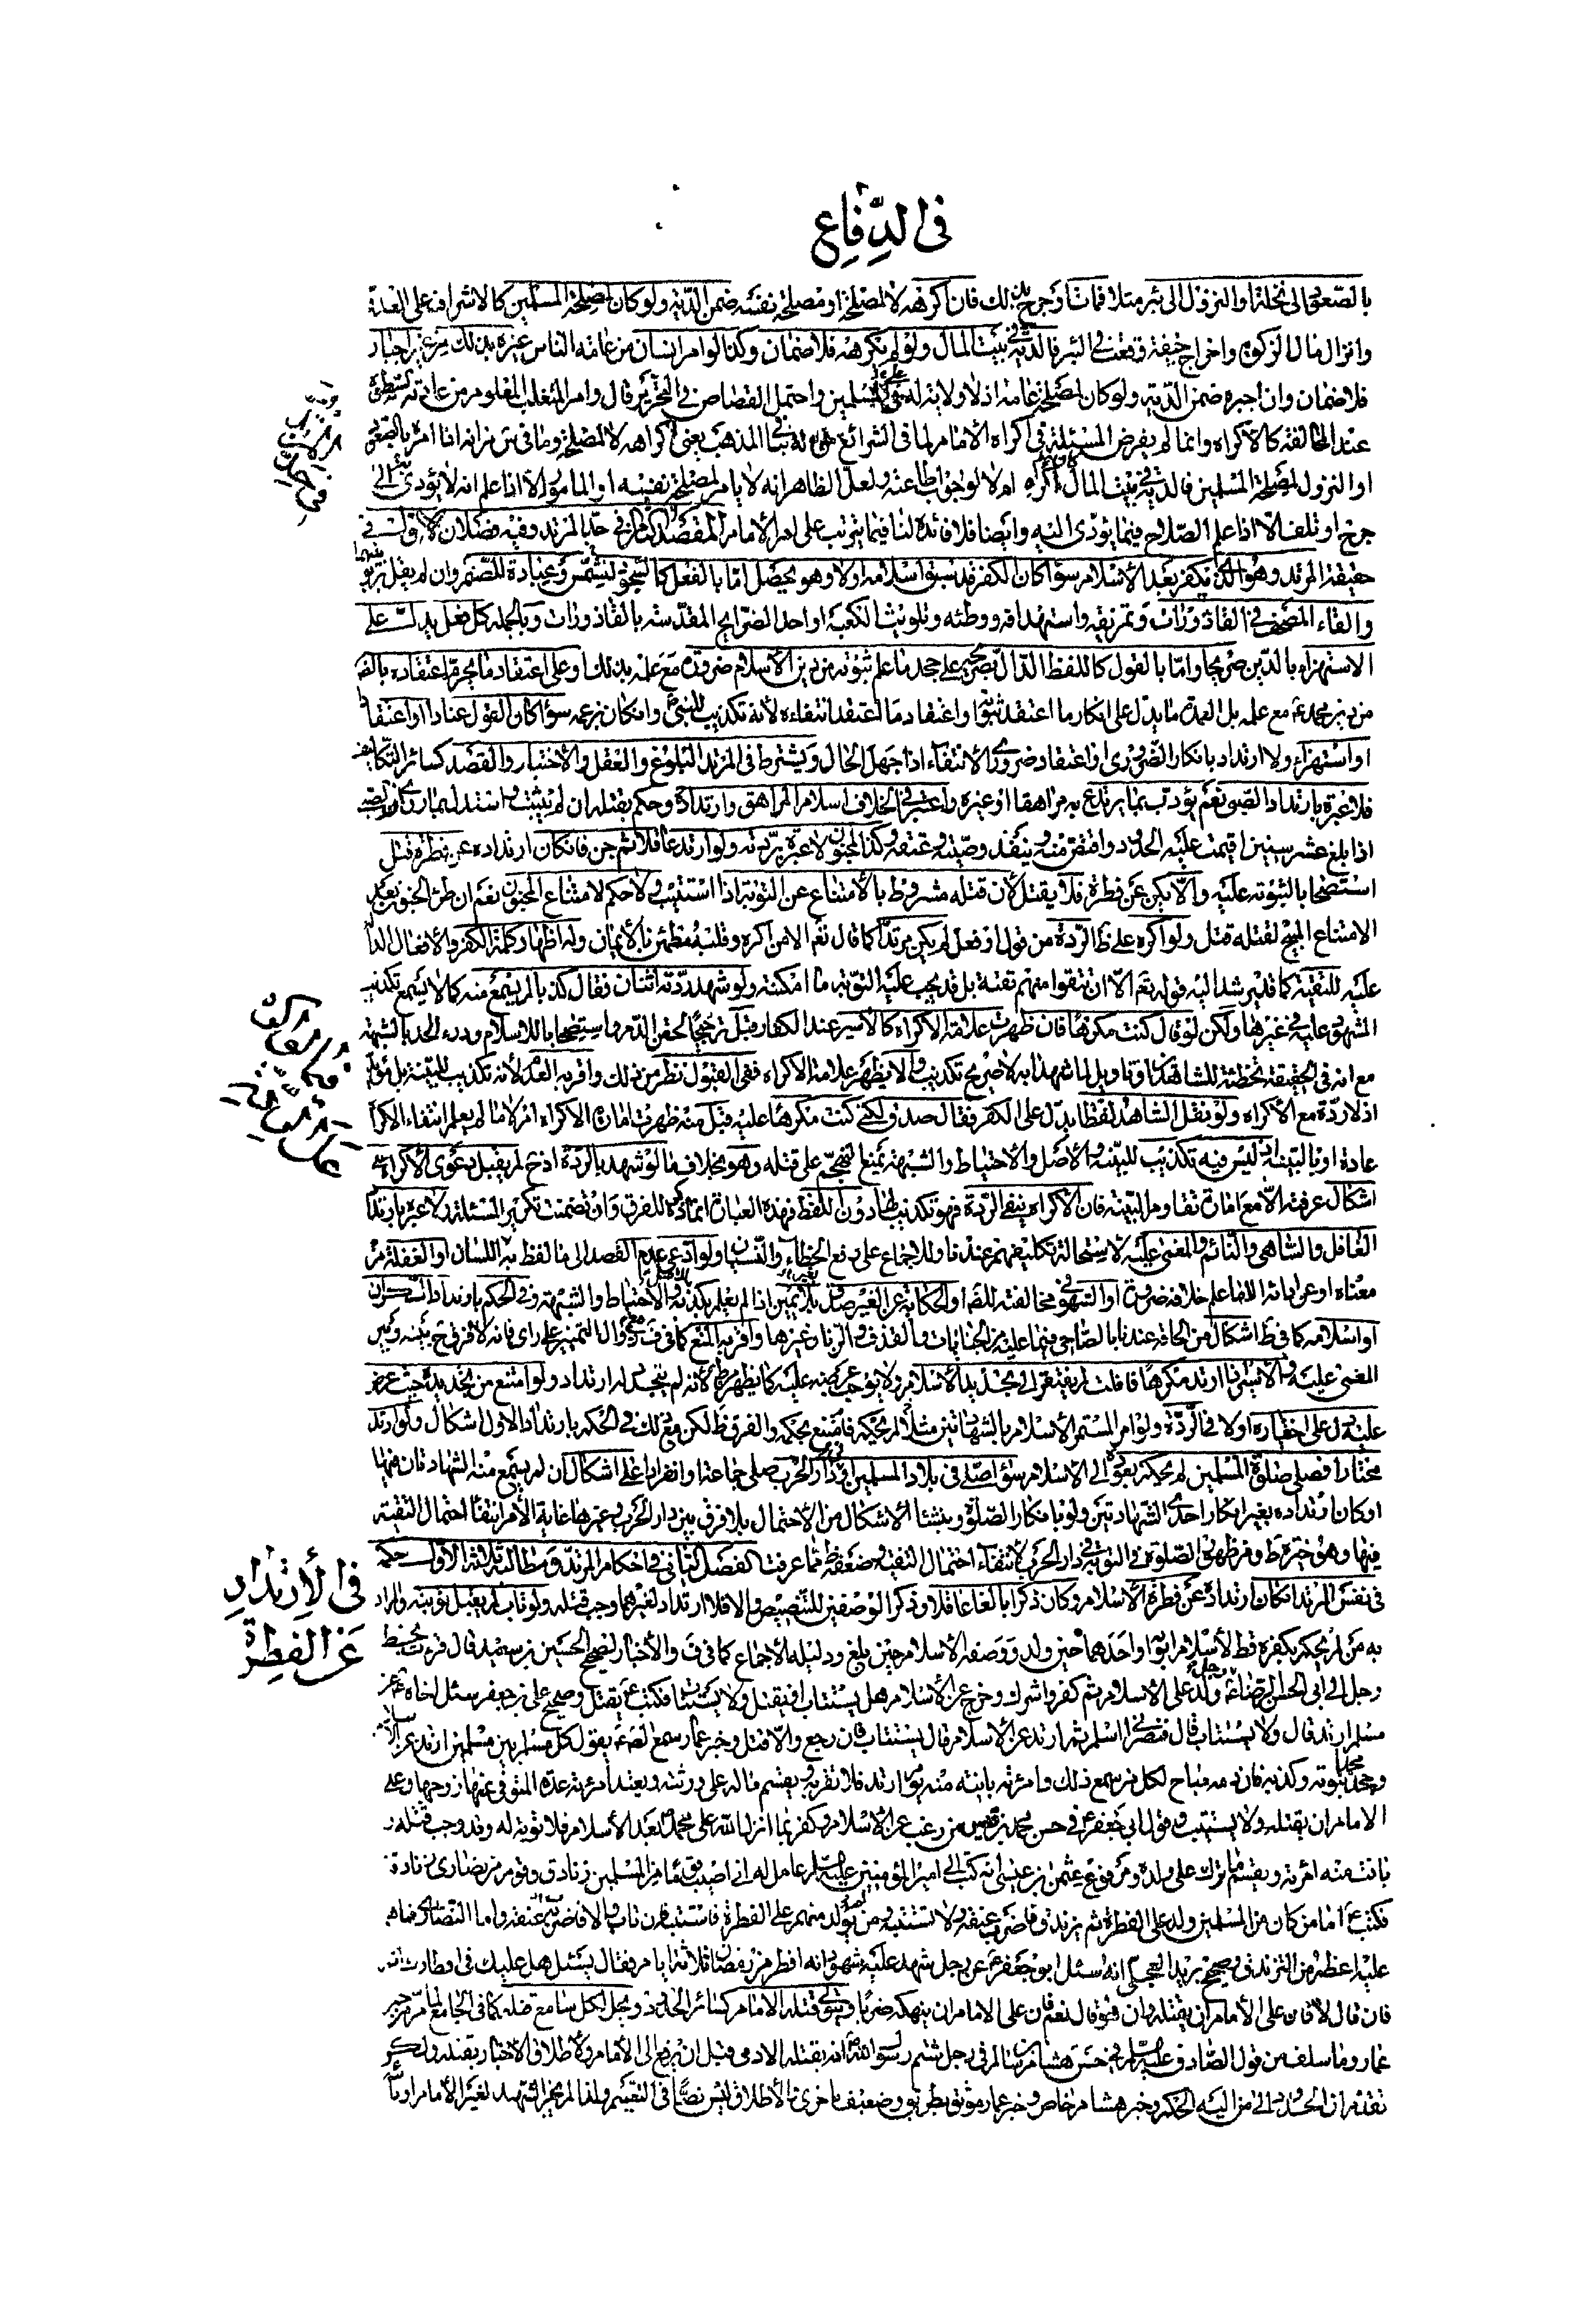 في الدِّفاعِ
بالصّعود الى نخلة او النزول الى بئر مثلا فمات او جرح بذلك فان اكرهه لا لمصلحة او مصلحة نفسه ضمن الدّية ولو كان لمصلحة المسلمين كالاشراف على العدوّ
وانزال مال الزكوة واخراج جيفة وقعت في البئر فالدّية في بيت المال ولو لم يكرهه فلا ضمان وكذا لو امر انسان من عامة الناس غيره بذلك من غير اجبار
فلا ضمان وان اجبره ضمن الدّية ولو كان لمصلحة عامة اذ لا ولاية له على المسلمين واحتمل القصاص في التحرير قال وامر المتغلب المعلوم من عادته السطوة
عند المخالفة كالاكراه وانما لم يفرض المسئلة في اكراه الامام لما في الشرائع من انه ينافي المذهب يعني اكراهه لا لمصلحة
او النزول لمصلحة المسلمين فالدية في بيت المال اكره ام لا لوجوب اطاعته ولعل الظاهر انه لا يامر لمصلحة نفسه او المامور الا اذا علم انه لا يؤدي الى
جرح او تلف الّا اذا علم الصّلاح فيما يؤدى اليه وايضا فلا فائدة لنا فيما يترتب على امر الامام المقصد الثامن في حدّ المرتد وفيه فصلان الاوّل في
حقيقة المرتد وهو الذي يكفر بعد الاسلام سواء كان الكفر قد سبق اسلامه اولا وهو يحصل امّا بالفعل كالسجود للشمس وعبادة للصّنم وان لم يقل بربوبيتهما
والقاء المصحف في القاذورات وتمزيقه واستهدافه ووطئه وتلويث الكعبة او احد الضرايح المقدسة بالقاذورات وبالجملة كل فعل يدلّ على
الاستهزاء بالدّين صريحا وامّا بالقول كاللفظ الدّال بصريحه على جحد ما علم ثبوته من دين الاسلام ضرورة مع علمه بذلك او على اعتقاد ما يحرم اعتقاده بالضرورة
من دين محمد مع علمه بل العمدة ما يدل على انكار ما اعتقد ثبوته او اعتقاد ما اعتقد انتفاءه لانه تكذيب للنبي وان كان بزعمه سواء كان القول عنادا او اعتقادا
او استهزاء ولا ارتداد بانكار الضروري او اعتقاد ضروري الانتفاء اذا جهل الحال ويشترط في المرتد البلوغ والعقل والاختيار والقصد كسائر التكاليف
فلا عبرة بارتداد الصبي نعم يؤدب بما يرتدع به مراهقا او غيره واعتبر في الخلاف اسلام المراهق وارتداده وحكم بقتله ان لم يتب واستند لما روي ان الصبي
اذا بلغ عشر سنين اقيمت عليه الحدود واقتص منه وينفذ وصيته وعتقه وكذا المجنون لا عبرة بردته ولو ارتد عاقلا ثم جن فان كان ارتداده عن فطرة قتل
استصحابا لثبوته عليه والّا يكن عن فطرة فلا يقتل لأن قتله مشروط بالامتناع عن التوبة اذا استتيب ولا حكم لامتناع المجنون نعم ان طرأ الجنون بعد
الامتناع المبيح لقتله قتل ولو اكره على الردّة من قول او فعل لم يكن مرتدّا كما قال تعالى الا من اكره وقلبه مطمئن بالايمان وله اظهار كلمة الكفر والافعال الدالّة
عليه للتقية كما قد يرشد اليه قوله تعالى الّا ان تتقوا منهم تقية بل قد يجب عليه التورية ما امكنه ولو شهد بردّته اثنان فقال كذبا لم يسمع منه كما لا يسمع تكذيب
الشهود عليه في غيرها ولكن لو قال كنت مكرها فان ظهرت علامة الاكراه كالاسير عند الكفار قبل ترجيحا لحقن الدم واستصحابا للاسلام ودرء الحد بالشبهة
مع انه في الحقيقة تخطئة للشاهد او تاويل لما شهدا به لا صريح تكذيب والا يظهر علامة الاكراه ففي القبول نظر من ذلك واقربه العدم لانه تكذيب للبينة بل مؤول
اذ لا ردّة مع الاكراه ولو نقل الشاهد لفظا يدل على الكفر فقال صدق ولكني كنت مكرها عليه قبل منه ظهرت امارة الاكراه ام لا ما لم يعلم انتفاء الاكراه
عادة او بالبيّنة اذ ليس فيه تكذيب للبيّنة والاصل والاحتياط والشبهة يمنع التهجم على قتله وهو بخلاف ما لو شهد بالردّة اذ ح لم يقبل دعوى الاكراه على
اشكال عرفته الّا مع امارة تقاوم البيّنة فان الاكراه ينفي الردّة فهو تكذيب لها دون اللفظ فهذه العبارة انما ذكر للفرق وان تضمنت تكرير المسئلة ولا عبرة بارتداد
الغافل والساهي والنائم والمغمى عليه لاستحالة تكليفهم عندنا وللاجماع على رفع الخطاء والنسيان ولو ادّعى عدم القصد الى ما لفظ به اللسان او الغفلة من
معناه او عن اباتة ما علم خلافه ضرورة او السهو في مخالفته للضرورة او الحكاية عن الغير صدق بلا يمين اذ لم يعلم كذبه والاحتياط والشبهة وفي الحكم بارتداد السكران
او اسلامه كما في ط اشكال من الحاقه عندنا بالصاحي فيما عليه من الجنايات والقذف والزنا وغيرها واقربه المنع كما في ف مع زوال التميز على راي فانه لا فرق ح بينه وبين
المغمى عليه والاسير اذا ارتد مكرها فافلت لم يفتقر الى تجديد الاسلام ولا يوجب عرضه عليه كما يظهر من ط لانه لم يتجدد له ارتداد ولو امتنع من تجديده حيث عرض
عليه دل على اختياره اولا في الردّة ولو امر المستمر الاسلام بالشهادتين مثلا لم يحكم فامتنع بحكمه والفرق ظ لكن مع ذلك في الحكم بارتداد الاول اشكال ولو ارتد
مختارا فصلى صلوة المسلمين لم يحكم بعوده الى الاسلام سواء صلى في بلاد المسلمين او دار الحرب صلى جماعة او انفرادا على اشكال ان لم يسمع منه الشهادتان فيها
او كان ارتداده بغير انكار احدى الشهادتين ولو بانكار الصّلوة وينشأ الاشكال من الاحتمال بلا فرق بين دار الحرب وغيرها غاية الامر انتفاء احتمال التقية
فيها وهو خيرة ط ومن ظهور الصّلوة في التوبة في دار الحرب لانتفاء احتمال التقية وضعفه ظ مما عرفت الفصل الثاني في احكام المرتدّ ومطالبه ثلثة الاول حكمه
في نفس المرتد ان كان ارتداده عن فطرة الاسلام وكان ذكرا بالغا عاقلا وذكر الوصفين للتنصيص والا فلا ارتداد لغيرهما وجب قتله ولو تاب لم يقبل توبته والمراد
به من لم يحكم بكفره قط لاسلام ابويه او احدهما حين ولد ووصفه الاسلام حين بلغ ودليله الاجماع كما في ف والاخبار لصحيح الحسين بن سعيد قال قرات بخط
رجل الى ابي الحسن الرضا ع رجل ولد على الاسلام ثم كفر واشرك وخرج عن الاسلام هل يستتاب او يقتل ولا يستتاب فكتب ع يقتل وصحيح علي بن جعفر سئل اخاه ع عن
مسلم ارتد قال يقتل ولا يستتاب قال فنصراني اسلم ثم ارتد عن الاسلام قال يستتاب فان رجع والّا قتل وخبر عمار سمع الصادق ع يقول كل مسلم بين مسلمين ارتد عن الاسلام
وجحد محمدا نبوته وكذبه فان دمه مباح لكل من سمع ذلك وامرئته باينة منه يوم ارتد فلا تقربه ويقسم ماله على ورثته وتعتد امرئته عدة المتوفى عنها زوجها وعلى
الامام ان يقتله ولا يستتيبه وقول ابي جعفر ع في حسن محمد بن مسلم من رغب عن الاسلام وكفر بما انزل الله على محمد بعد الاسلام فلا توبة له وقد وجب قتله و
بانت منه امرئته ويقسم ما ترك على ولده ومرفوع عثمن بن عيسى انه كتب الى امير المؤمنين عليه السلم عامل له اني اصبت قوما من المسلمين زنادقة وقوما من نصارى زنادقة
فكتب ع اما من كان من المسلمين ولد على الفطرة ثم تزندق فاضرب عنقه ولا تستتبه ومن لم يولد منهم على الفطرة فاستتبه فان تاب والا فاضرب عنقه واما النصارى فما هم
عليه اعظم من الزندقة وصحيح بريد العجلي انه سئل ابو جعفر ع عن رجل شهد عليه شهود انه افطر من رمضان ثلاثة ايام فقال يسئل هل عليك في افطارك اثم
فان قال لا فان على الامام ان يقتله وان هو قال نعم فان على الامام ان ينهكه ضربا ويتولى قتله الامام كسائر الحدود ويحل لكل سامع قتله كما في الجامع لما مر من خبر
عمار وما سلف من قول الصّادق عليه السلم في حسن هشام بن سالم في رجل شتم رسول الله ص انه يقتله الادنى فالادنى قبل ان يرفع الى الامام ولاطلاق الاخبار بقتله ولكن
تقدم ان الحدود الى من اليه الحكم وخبر هشام خاص وخبر عمار موثق بطريق وضعيف باخرى والاطلاق ليس نصّا في التعميم ولذا لم يجز الشهيد لغير الامام او نائبه
في الأرتدادِ
عن الفطرة